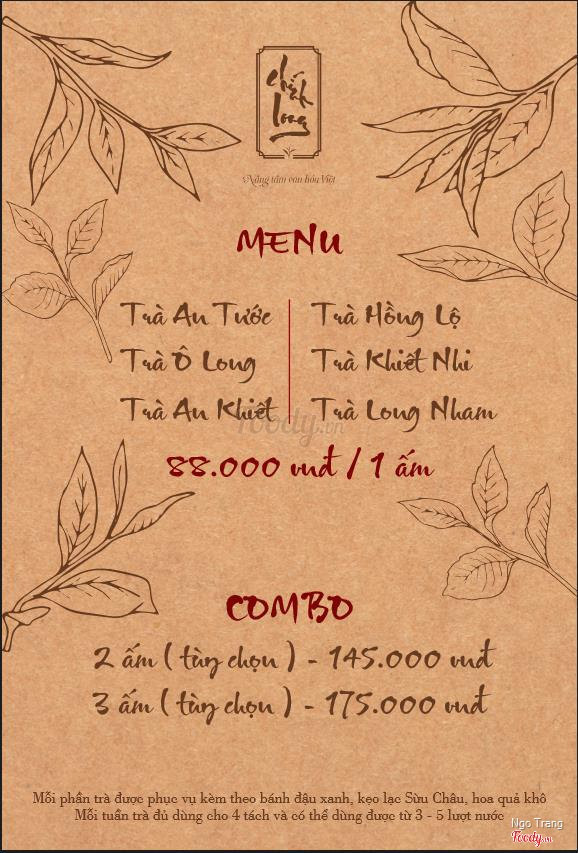 chính
long
Nâng tầm văn hóa Việt
MENU
Trà An Tước
Trà Ô Long
Trà An Khiết
Trà Hồng Lộ
Trà Khiết Nhi
Trà Long Nham
88.000 vnđ / 1 ấm
COMBO
2 ấm ( tùy chọn ) - 145.000 vnđ
3 ấm ( tùy chọn ) - 175.000 vnđ
Mỗi phần trà được phục vụ kèm theo bánh đậu xanh, kẹo lạc Sừu Châu, hoa quả khô
Mỗi tuần trà đủ dùng cho 4 tách và có thể dùng được từ 3 - 5 lượt nước
foody.vn
Ngo Trang
Foody.vn